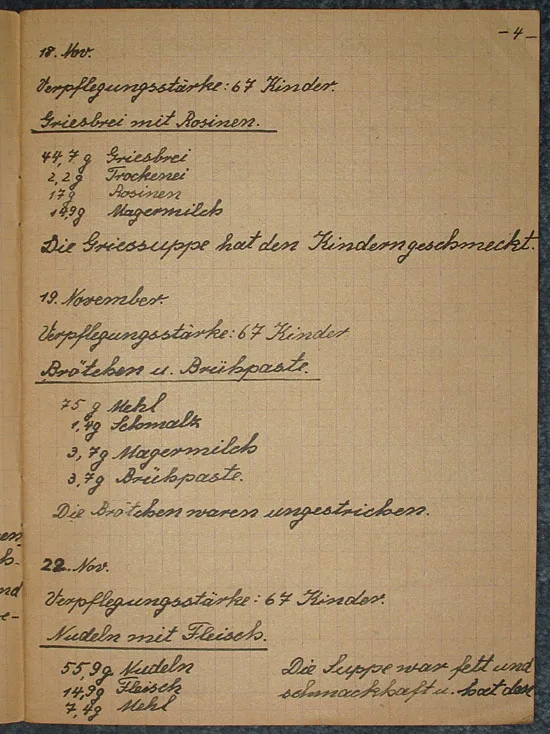 - 4 -
18. Nov.
Verpflegungsstärke: 67 Kinder.
Griesbrei mit Rosinen.
44,7 g Griesbrei
2,2 g Trockenei
17 g Rosinen
14,9 g Magermilch
Die Griessuppe hat den Kindern geschmeckt.
19. November.
Verpflegungsstärke: 67 Kinder
Brötchen u. Brühpaste.
75 g Mehl
1,4 g Schmalz
3,7 g Magermilch
3,7 g Brühpaste.
Die Brötchen waren ungestrichen.
22. Nov.
Verpflegungsstärke: 67 Kinder.
Nudeln mit Fleisch.
55,9 g Nudeln
14,9 g Fleisch
7,4 g Mehl
Die Suppe war fett und
schmackhaft u. hat den